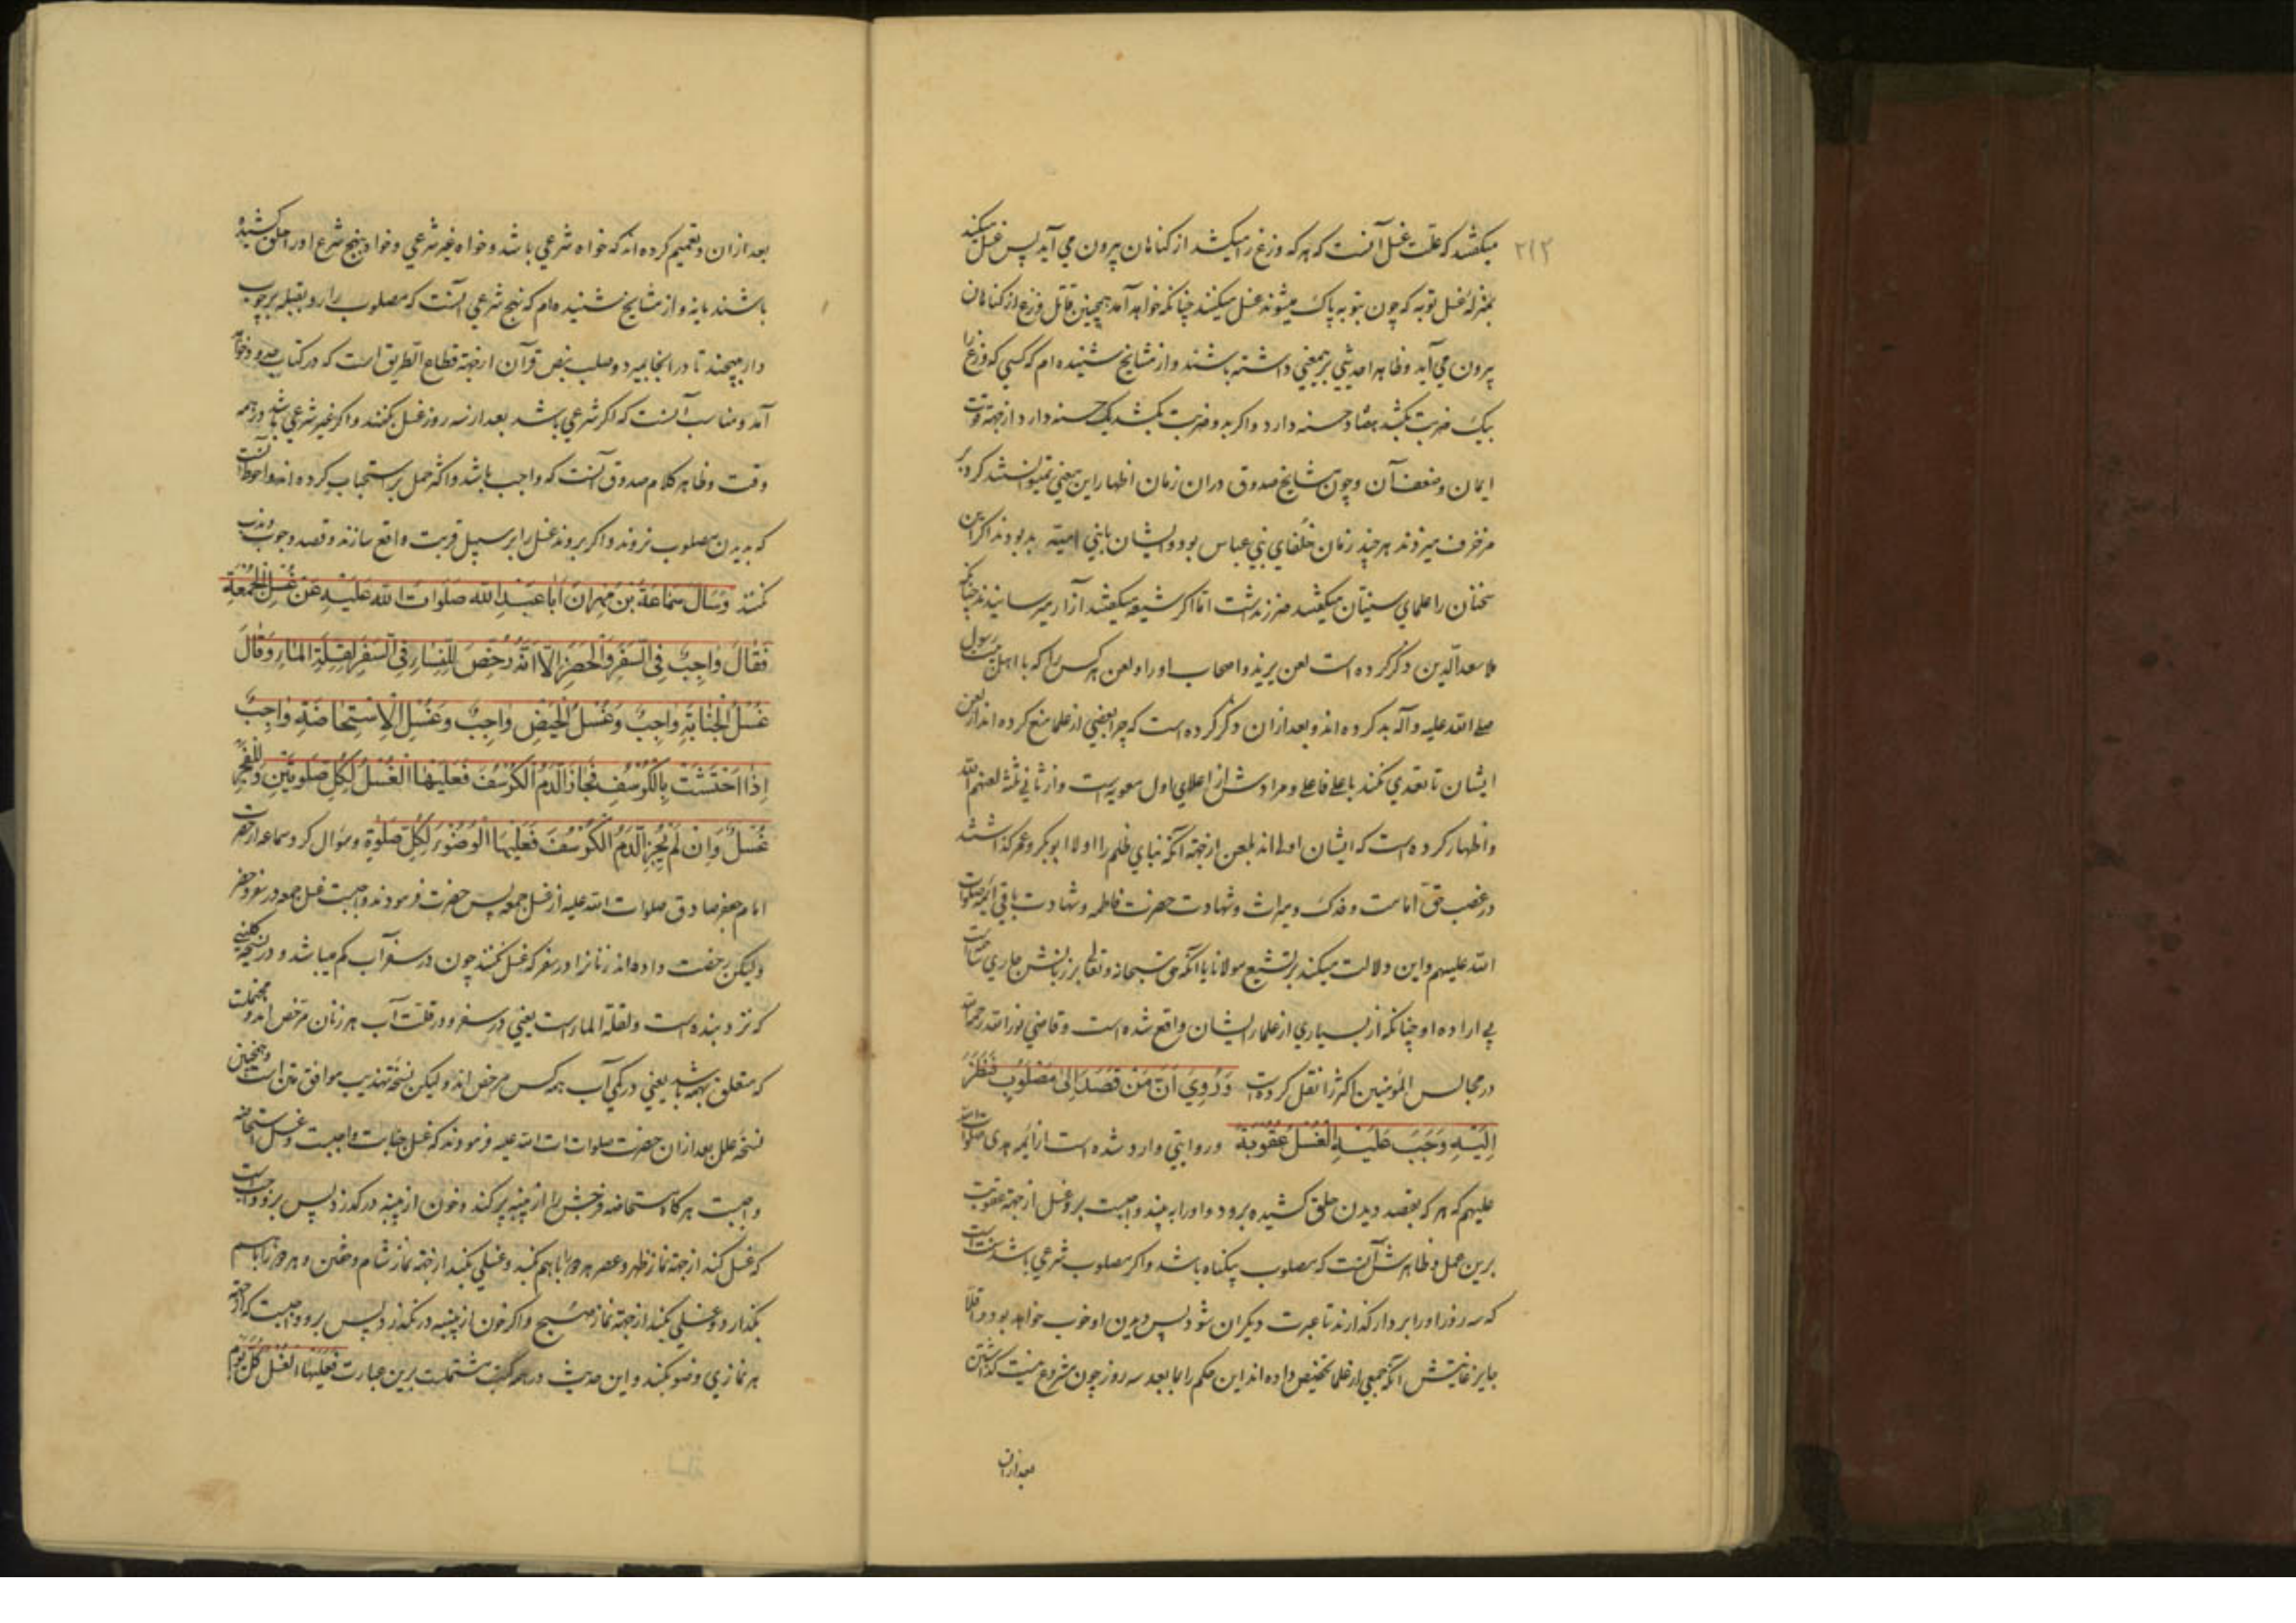 ۲۱۲
میکفتند که علت غسل آنست که هر که وزغ را میکشد از کناهان بیرون می آید پس غسل میکند
بمنزلهٔ غسل توبه که چون بتوبه پاک میشوند غسل میکنند چنانکه خواهد آمد همچنین قاتل وزغ از کناهان
بیرون می آید و ظاهرا حدیثی برین معنی داشته باشند و از مشایخ شنیده ام که کسی که وزغ را
بیک ضربت بکشد هفتاد حسنه دارد و اکر بدو ضربت بکشد یک حسنه دارد از جهة قوت
ایمان و ضعف آن و چون مشایخ صدوق در ان زمان اظهار این معنی نمیتوانستند کرد بر
مزخرف میزدند هر چند زمان خلفای بنی عباس بود و ایشان با بنی امیه بد بودند اکر این
سخنان را علمای سنیان میکفتند ضرر نداشت اما اکر شیعه میکفتند آزار میرسانیدند چنانکه
ملا سعد الدین ذکر کرده است لعن یزید و اصحاب او را و لعن هر کس را که با اهل بیت رسول
صلی الله علیه و آله بد کرده اند و بعد ازان ذکر کرده است که چرا بعضی از علما منع کرده اند از لعن
ایشان تا تعدی نکنند باعلی فاعلی و مرادش از اعلای اول معویه است و از ثانی ثلثه لعنهم الله
و اظهار کرده است که ایشان اولی اند بلعن از جهة آنکه بنای ظلم را اولا ابو بکر و عمر کذاشتند
در غصب حق امامت و فدک و میراث و شهادت حضرت فاطمه و شهادت باقی ائمه صلوات
الله علیهم و این دلالت میکند بر تشیع مولانا یا آنکه حق سبحانه و تعالی بر زبانش جاری ساخت
بی اراده او چنانکه از بسیاری از علماء ایشان واقع شده است و قاضی نور الله رحمه الله
در مجالس المؤمنین اکثر را نقل کرده است وَرُوِيَ اَنَّ مَنْ قَصَدَ اِلى مَصْلُوبٍ فَنَظَرَ
اِلَيْهِ وَجَبَ عَلَيْهِ الْغُسْلُ عُقُوبَةً و روایتی وارد شده است از ائمه هدی صلوات الله
علیهم که هر که بقصد دیدن حلق کشیده برود و او را به بیند واجبست برو غسل از جهة عقوبت
برین عمل و ظاهرش آنست که مصلوب بیکناه باشد و اکر مصلوب شرعی باشد
که سه روز او را بر دار کذارند تا عبرت دیکران شود پس دیدن او خوب خواهد بود و اقلا
جایز غایتش آنکه جمعی از علما تخصیص داده اند این حکم را بما بعد سه روز چون مشروع نیست کذاشتن
بعد ازان
بعد ازان و تعمیم کرده اند که خواه شرعی باشد و خواه غیر شرعی و خواه بنهج شرع او را حلق کشیده
باشند یا نه و از مشایخ شنیده ام که نهج شرعی آنست که مصلوب را رو بقبله بر چوب
دار میبندند تا در انجا بمیرد و صلب بنص قرآن از جهة قطاع الطریق است که در کتاب حدود خواهد
آمد و مناسب آنست که اکر شرعی باشد بعد از سه روز غسل بکنند و اکر غیر شرعی باشد در همه
وقت و ظاهر کلام صدوق آنست که واجب باشد و اکثر حمل بر استحباب کرده اند و احوط آنست
که بدیدن مصلوب نروند و اکر بروند غسل را بر سبیل قربت واقع سازند و قصد وجوب و ندب
نکنند وَسَاَلَ سَمَاعَةُ بْنُ مِهْرَانَ اَبَا عَبْدِ الله صَلَوَاتُ الله عَلَيْهِ عَنْ غُسْلِ الْجُمُعَةِ
فَقَالَ وَاجِبٌ فِي السَّفَرِ وَالْحَضَرِ اِلَّا اَنَّهُ رُخِّصَ لِلنِّسَاءِ فِي السَّفَرِ لِقِلَّةِ الْمَاءِ وَقَالَ
غُسْلُ الْجَنَابَةِ وَاجِبٌ وَغُسْلُ الْحَيْضِ وَاجِبٌ وَغُسْلُ الْاِسْتِحَاضَةِ وَاجِبٌ
اِذَا احْتَشَتْ بِالْكُرْسُفِ فَجَازَ الدَّمُ الْكُرْسُفَ فَعَلَيْهَا الْغُسْلُ لِكُلِّ صَلٰوتَيْنِ وَلِلْفَجْرِ
غُسْلٌ وَاِنْ لَمْ يَجُزِ الدَّمُ الْكُرْسُفَ فَعَلَيْهَا الْوُضُوءُ لِكُلِّ صَلٰوةٍ و سؤال کرد سماعه از حضرت
امام جعفر صادق صلوات الله علیه از غسل جمعه پس حضرت فرمودند واجبست غسل جمعه در سفر و حضر
ولیکن رخصت داده اند زنانرا در سفر که غسل نکنند چون در سفر آب کم میباشد و در نسخهٔ کلینی
که نزد بنده است و لقلة الماء است یعنی در سفر و در قلت آب هر زنان مرخص اند و محتملست
که متعلق بهمه باشد یعنی در کمی آب همه کس مرخص اند ولیکن نسخهٔ تهذیب موافق متن است و همچنین
نسخهٔ علل بعد ازان حضرت صلوات الله علیه فرمودند که غسل جنابت واجبست و غسل استحاضه
واجبست هر کاه استحاضه فرجش را از پنبه پر کند و خون از پنبه در کذرد پس برو واجبست
که غسل کند از جهة نماز ظهر و عصر هر دو را با هم بکند و غسلی بکند از جهة نماز شام و خفتن و هر دو را با هم
بکذارد و غسلی بکند از جهة نماز صبح و اکر خون از پنبه در نکذرد پس برو واجبست که از جهة
هر نمازی وضو بکند و این حدیث در همه کتب مشتملست برین عبارت فَعَلَيْهَا الْغُسْلُ كُلَّ يَوْمٍ